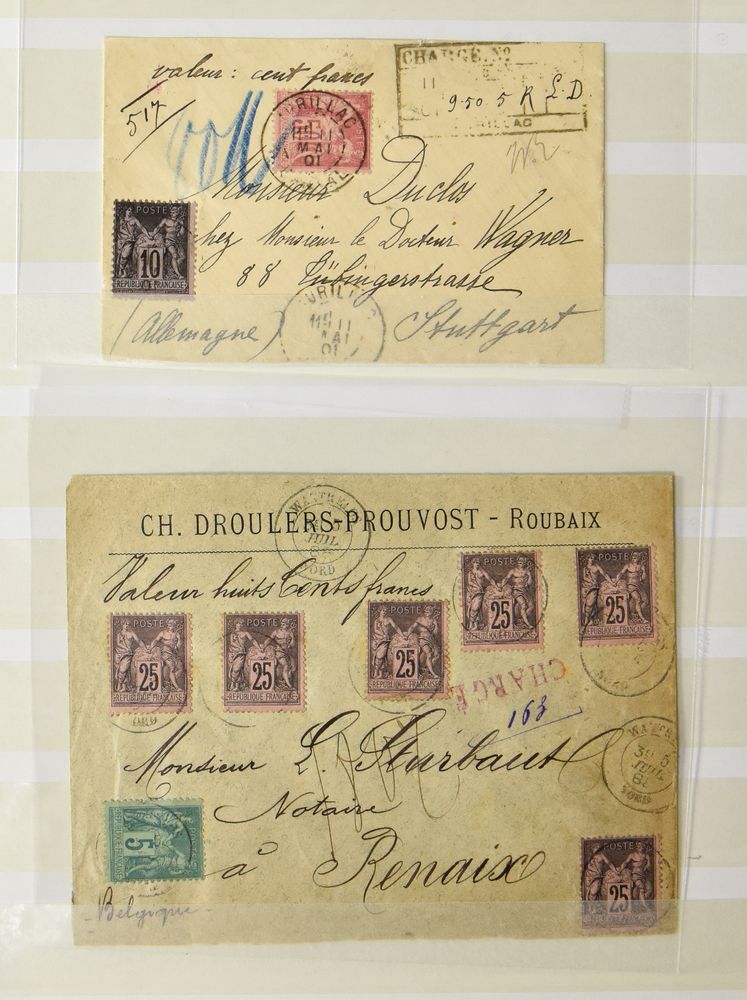 valeur : cent francs
517
CHARGÉ Nº
950 5 R L D
AURILLAC
11
MAI
01
Monsieur Duclos
chez Monsieur le Docteur Wagner
88 Tübingerstrasse
POSTE
10
REPUBLIQUE FRANÇAISE
AURILLAC
11
MAI
01
(Allemagne) Stuttgart
WATTRELOS
JUIL
NORD
CH. DROULERS-PROUVOST - ROUBAIX
Valeur huit Cents francs
POSTE
25
REPUBLIQUE FRANÇAISE
POSTE
25
REPUBLIQUE FRANÇAISE
POSTE
25
REPUBLIQUE FRANÇAISE
POSTE
25
REPUBLIQUE FRANÇAISE
POSTE
25
REPUBLIQUE FRANÇAISE
CHARGÉ
163
Monsieur L. Sturbaut
Notaire
à Renaix
5
REPUBLIQUE FRANÇAISE
JUIL
NORD
POSTE
25
- Belgique -